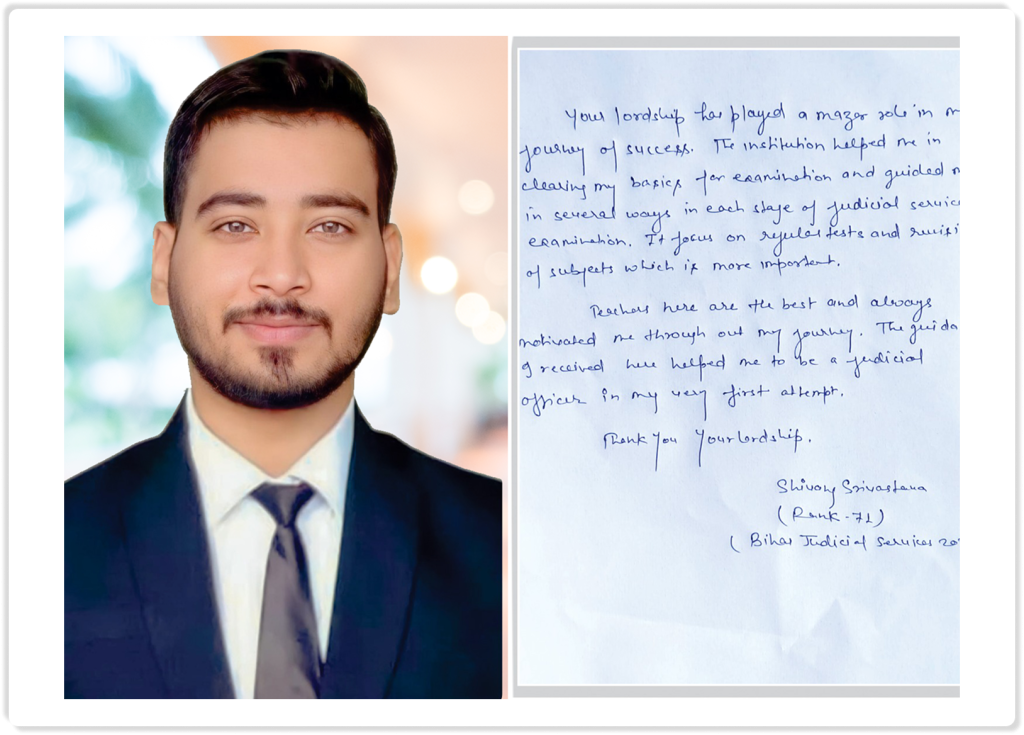 Your lordship has played a mazor role in m
journey of success. The institution helped me in
clearing my basics for examination and guided m
in several ways in each stage of judicial servic
examination. It focus on regular tests and revisi
of subjects which is more important.
Teachers here are the best and always
motivated me through out my journey. The guida
I received here helped me to be a judicial
officer in my very first attempt.
Thank You Your lordship.
Shivang Srivastava
(Rank - 71)
( Bihar Judicial Services 20